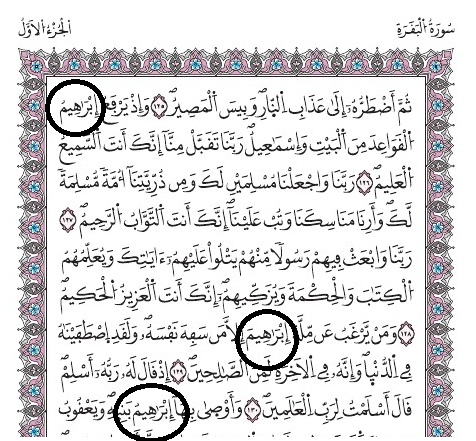 سُورَةُ الْبَقَرَةِ
الْجُزْءُ الْأَوَّلُ
ثُمَّ أَضْطَرُّهُۥٓ إِلَىٰ عَذَابِ اِ۬لنّ۪ارِ وَبِيسَ اَ۬لْمَصِيرُۖ ١٢٥ وَإِذْ يَرْفَعُ إِبْرَٰهِيمُ
اُ۬لْقَوَاعِدَ مِنَ اَ۬لْبَيْتِ وَإِسْمَٰعِيلُ رَبَّنَا تَقَبَّلْ مِنَّآ إِنَّكَ أَنتَ اَ۬لسَّمِيعُ
اُ۬لْعَلِيمُۖ ١٢٦ رَبَّنَا وَاجْعَلْنَا مُسْلِمَيْنِ لَكَ وَمِن ذُرِّيَّتِنَآ أُمَّةٗ مُّسْلِمَةٗ
لَّكَ وَأَرِنَا مَنَاسِكَنَا وَتُبْ عَلَيْنَآ إِنَّكَ أَنتَ اَ۬لتَّوَّابُ اُ۬لرَّحِيمُۖ ١٢٧
رَبَّنَا وَابْعَثْ فِيهِمْ رَسُولاٗ مِّنْهُمْ يَتْلُواْ عَلَيْهِمُۥٓ ءَايَٰتِكَ وَيُعَلِّمُهُمُ
اُ۬لْكِتَٰبَ وَالْحِكْمَةَ وَيُزَكِّيهِمُۥٓ إِنَّكَ أَنتَ اَ۬لْعَزِيزُ اُ۬لْحَكِيمُۖ
١٢٨ وَمَنْ يَّرْغَبُ عَن مِّلَّةِ إِبْرَٰهِيمَ إِلَّا مَن سَفِهَ نَفْسَهُۥۖ وَلَقَدِ اِ۪صْطَفَيْنَٰهُ
فِے اِ۬لدُّنْي۪اۖ وَإِنَّهُۥ فِے اِ۬لَاخِرَةِ لَمِنَ اَ۬لصَّٰلِحِينَۖ ١٢٩ إِذْ قَالَ لَهُۥ رَبُّهُۥٓ أَسْلِمْۖ
قَالَ أَسْلَمْتُ لِرَبِّ اِ۬لْعَٰلَمِينَۖ ١٣٠ وَأَوْص۪ىٰ بِهَآ إِبْرَٰهِيمُ بَنِيهِ وَيَعْقُوبُ